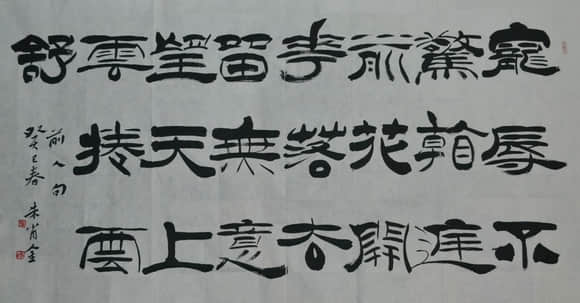 寵辱不
驚看庭
前花開
花落去
留無意
望天上
雲捲雲
舒
前人句
癸巳春 朱肖金